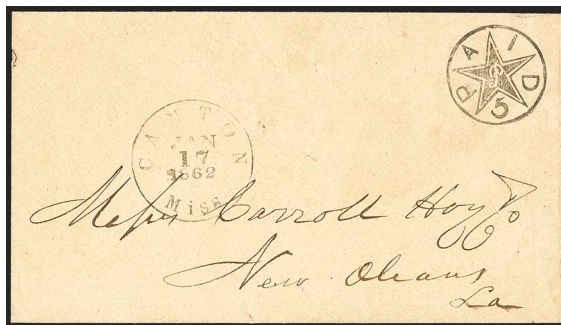 PAID
5
CANTON
JAN
17
1862
Miss
Messrs Carroll Hoy & Co
New Orleans
La